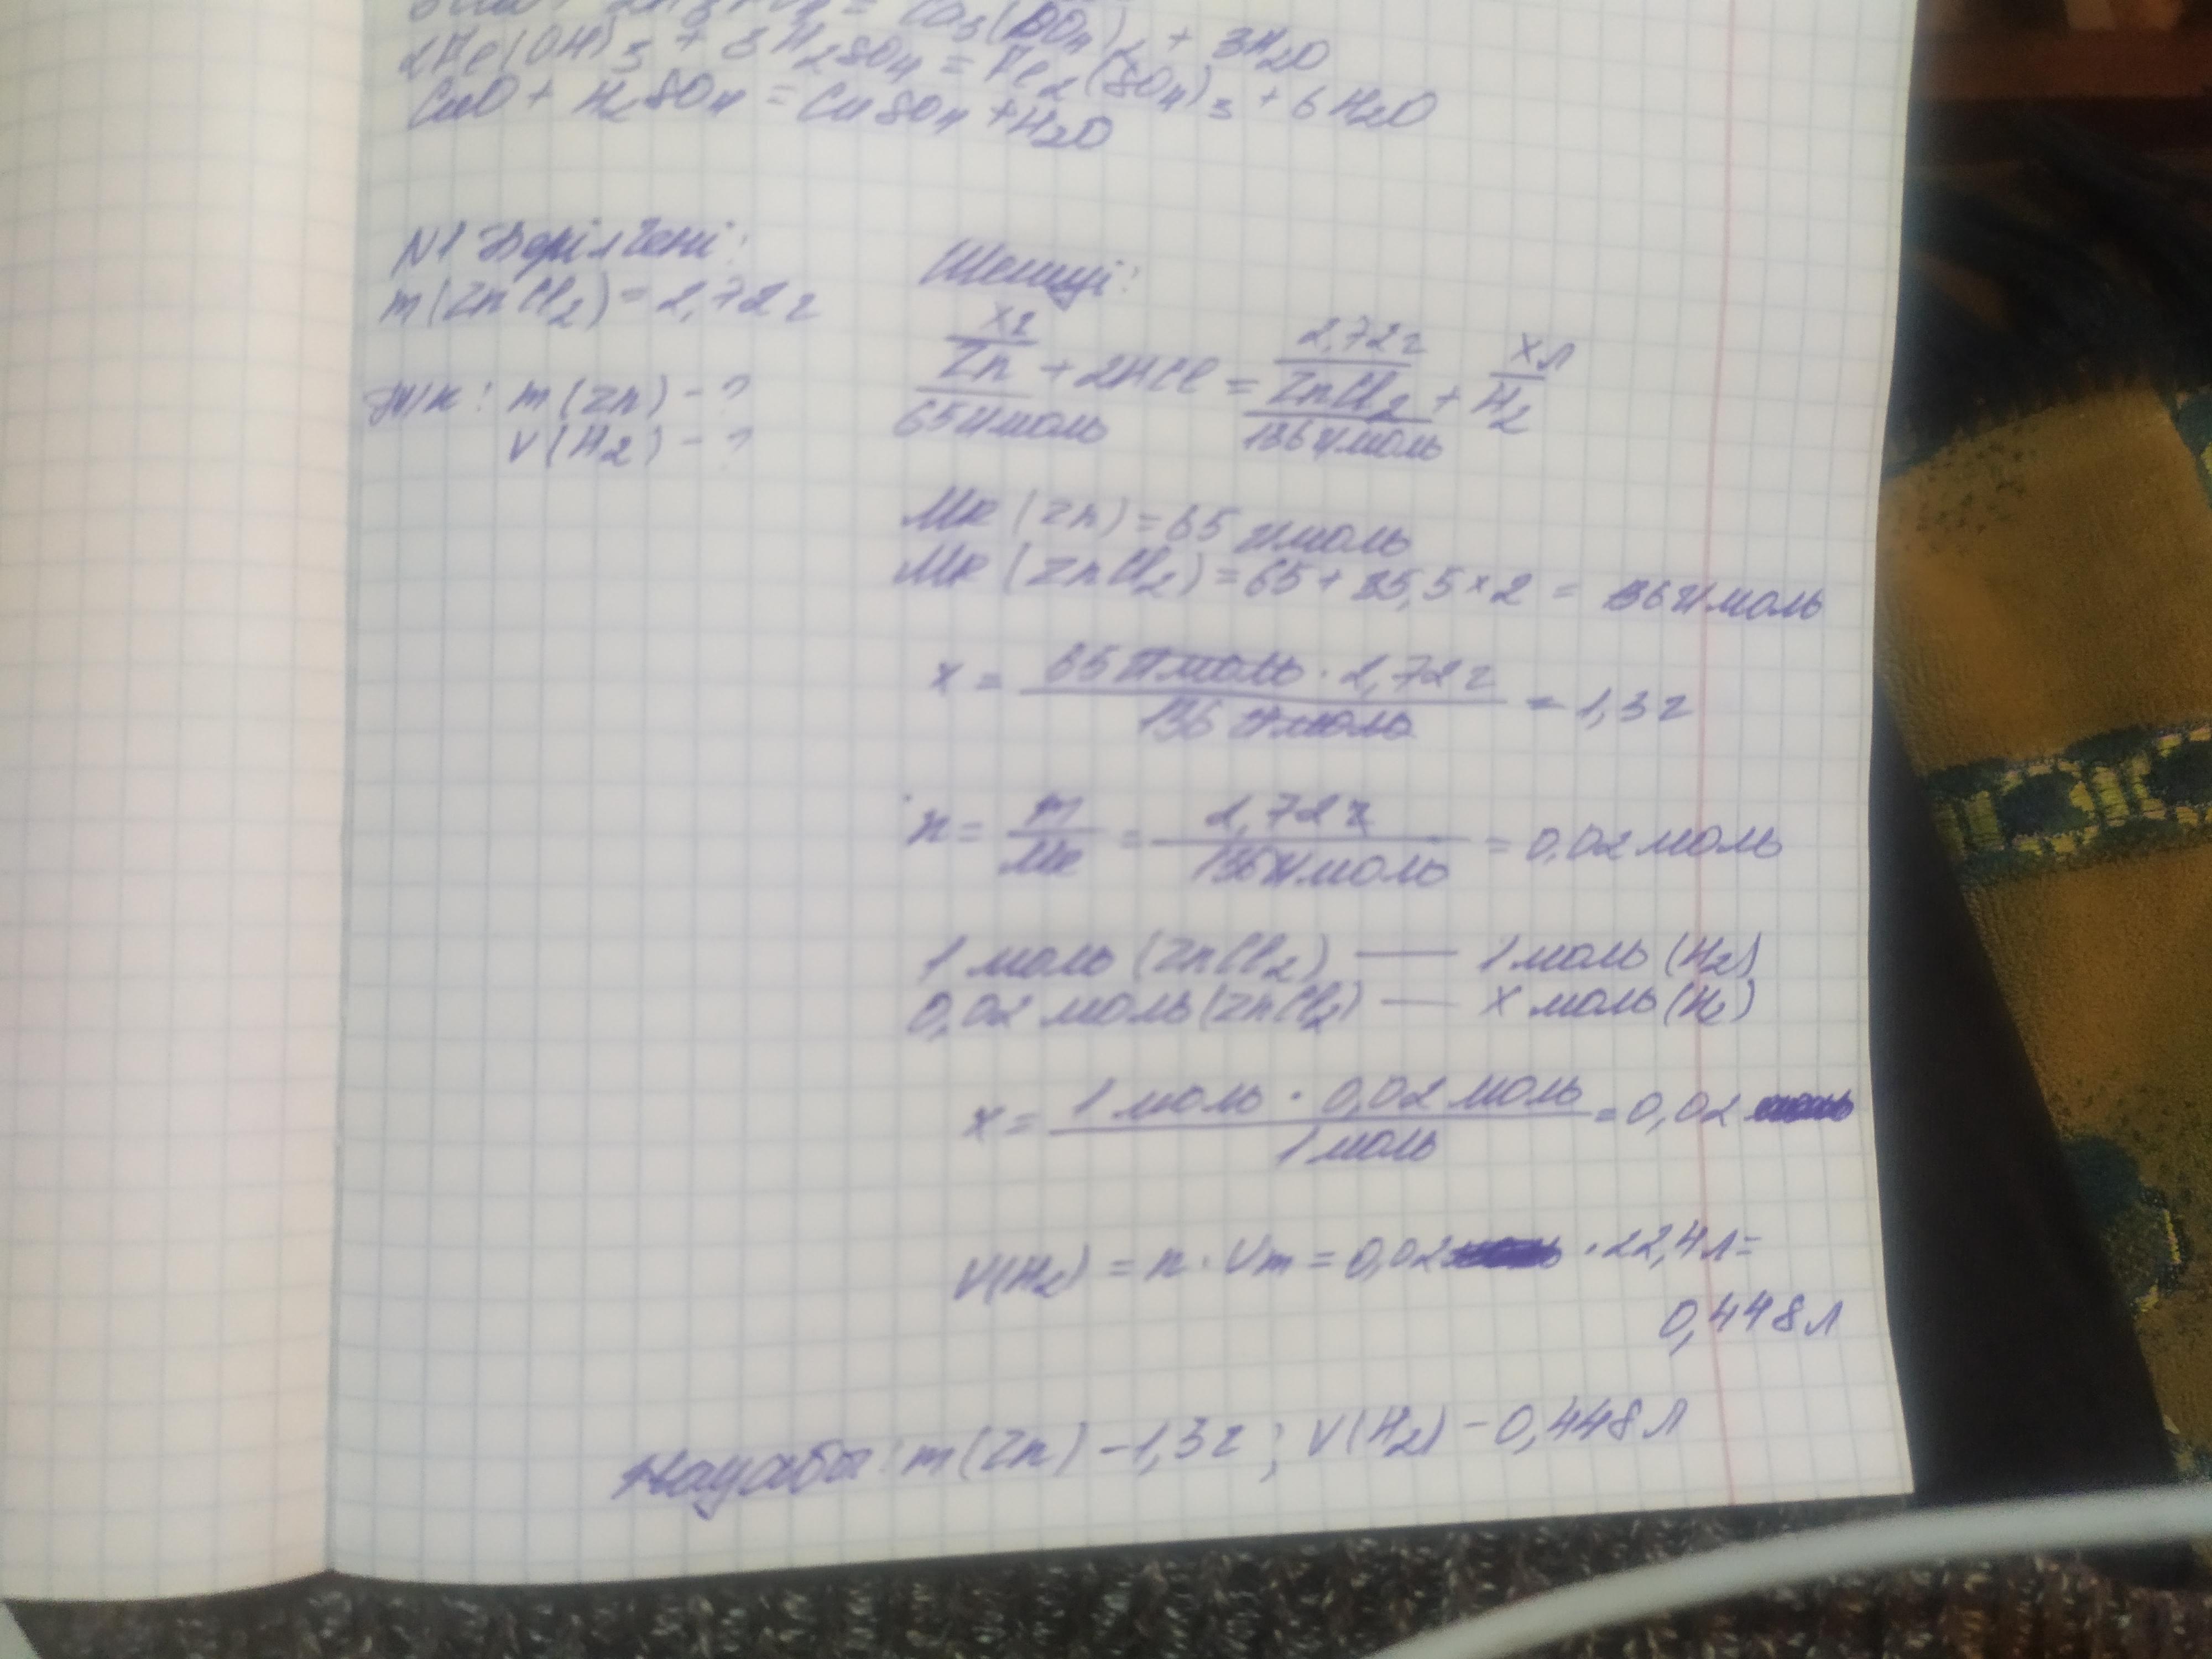 = Ca3(PO4)2 + 3H2O
2Fe(OH)3 + 3H2SO4 = Fe2(SO4)3 + 6H2O
CuO + H2SO4 = CuSO4 + H2O
N1 Берілгені:
m(ZnCl2) = 2,72г
Т/к: m(Zn) - ?
V(H2) - ?
Шешуі:
xг 2,72г xл
Zn + 2HCl = ZnCl2 + H2
65г/моль 136г/моль
Mr(Zn) = 65 г/моль
Mr(ZnCl2) = 65 + 35,5 × 2 = 136г/моль
x = 65г/моль · 2,72г / 136 г/моль = 1,3г
n = m / Mr = 2,72г / 136г/моль = 0,02 моль
1 моль (ZnCl2) — 1 моль (H2)
0,02 моль (ZnCl2) — x моль (H2)
x = 1 моль · 0,02 моль / 1 моль = 0,02
V(H2) = n · Vm = 0,02 · 22,4л =
0,448л
Жауабы: m(Zn) - 1,3г ; V(H2) - 0,448л